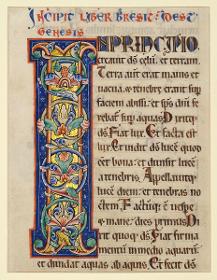 Incipit liber bresit idest
Genesis
IN PRINCIPIO
creavit ds celu et terram.
Terra aut erat inanis et
vacua. et tenebre erant sup
faciem abissi. et sps dni fe
rebat sup aquas. Dixitq;
ds. Fiat lux. Et facta est
lux. Et vidit ds lucem qd
eet bona. et divisit luce
a tenebris. Appellavitq;
luce diem. et tenebras no
ctem. Factuq; e vespe
et mane. dies unus. Di
xit quoq; ds. Fiat firma
mentu in medio aquaru.
et dividat aquas ab aquis. Et fecit ds